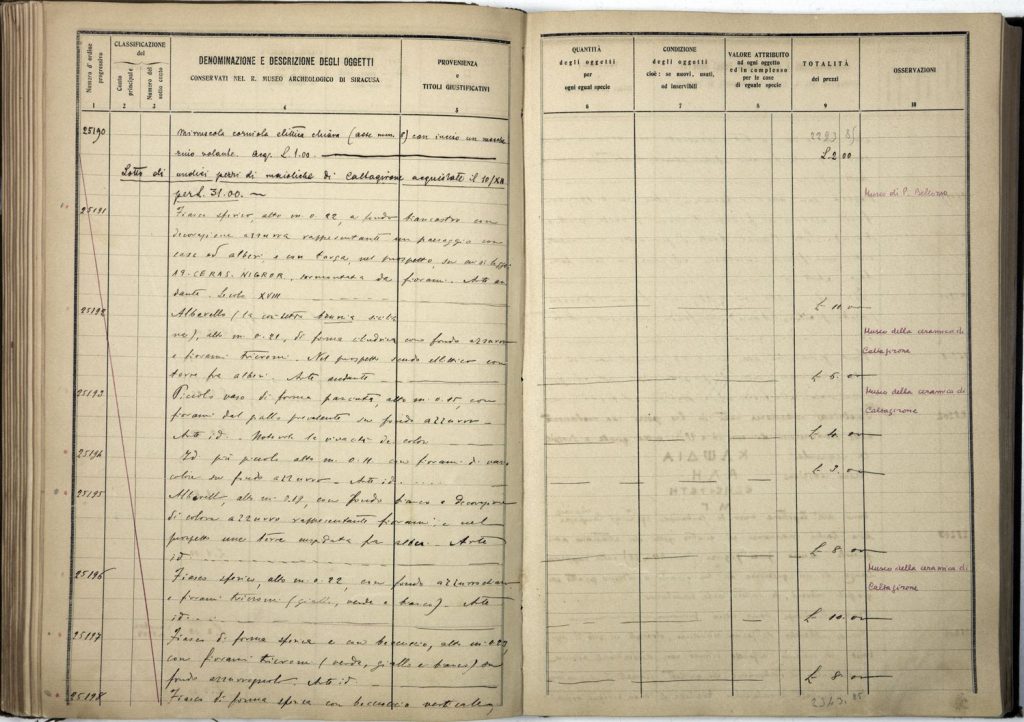 Numero d'ordine progressivo
CLASSIFICAZIONE del
Conto principale
Numero del sotto conto
DENOMINAZIONE E DESCRIZIONE DEGLI OGGETTI
CONSERVATI NEL R. MUSEO ARCHEOLOGICO DI SIRACUSA
PROVENIENZA
e
TITOLI GIUSTIFICATIVI
1 2 3 4 5
25190 Minuscola corniola ellittica chiara (asse mm. 8) con inciso un
volante. acq. L. 1.00.
Lotto di undici pezzi di maioliche di Caltagirone acquistate il 10/XII
per L. 31.00.
25191 Fiasco sferico, alto m. 0.22, a fondo biancastro con
decorazione azzurra rappresentante un paesaggio con
case ed alberi, e con targa, nel prospetto, su cui si legge
CERAS. NIGROR, sormontata da fiorami. Arte an
dante. Secolo XVIII
25192 Albarello
alto m. 0.21, di forma cilindrica con fondo azzurro
e fiorami tricromi. Nel prospetto scudo ellittico con
torre fra alberi. Arte andante
25193 Piccolo vaso di forma panciuta, alto m. 0.15, con
fiorami dal giallo prevalente su fondo azzurro
Arte id. Notevole la vivacità dei colori
25194 Id. più piccolo alto m. 0.11 con fiorami di vario
colore su fondo azzurro. Arte id.
25195 Albarello, alto m. 0.19, con fondo bianco e decorazione
di colore azzurro rappresentante fiorami: e nel
prospetto una torre fra alberi. Arte
id.
25196 Fiasco sferico, alto m. 0.22, con fondo
e fiorami tricromi (giallo, verde e bianco). Arte
id.
25197 Fiasco di forma sferica e con beccuccio, alto m. 0.23
con fiorami tricromi (verde, giallo e bianco) su
fondo Arte id.
25198 Fiasco di forma sferica con beccuccio verticale,
QUANTITÀ
degli oggetti
per
ogni egual specie
CONDIZIONE
degli oggetti
cioè: se nuovi, usati,
od inservibili
VALORE ATTRIBUITO
ad ogni oggetto
ed in complesso
per le cose
di eguale specie
TOTALITÀ
dei prezzi
OSSERVAZIONI
6 7 8 9 10
L. 2 00
Museo di P. Bellomo
L. 10. 00
Museo della ceramica di
Caltagirone
L. 5. 00
Museo della ceramica di
Caltagirone
L. 4. 00
L. 3. 00
L. 8. 00
Museo della ceramica di
Caltagirone
L. 10. 00
L. 8. 00